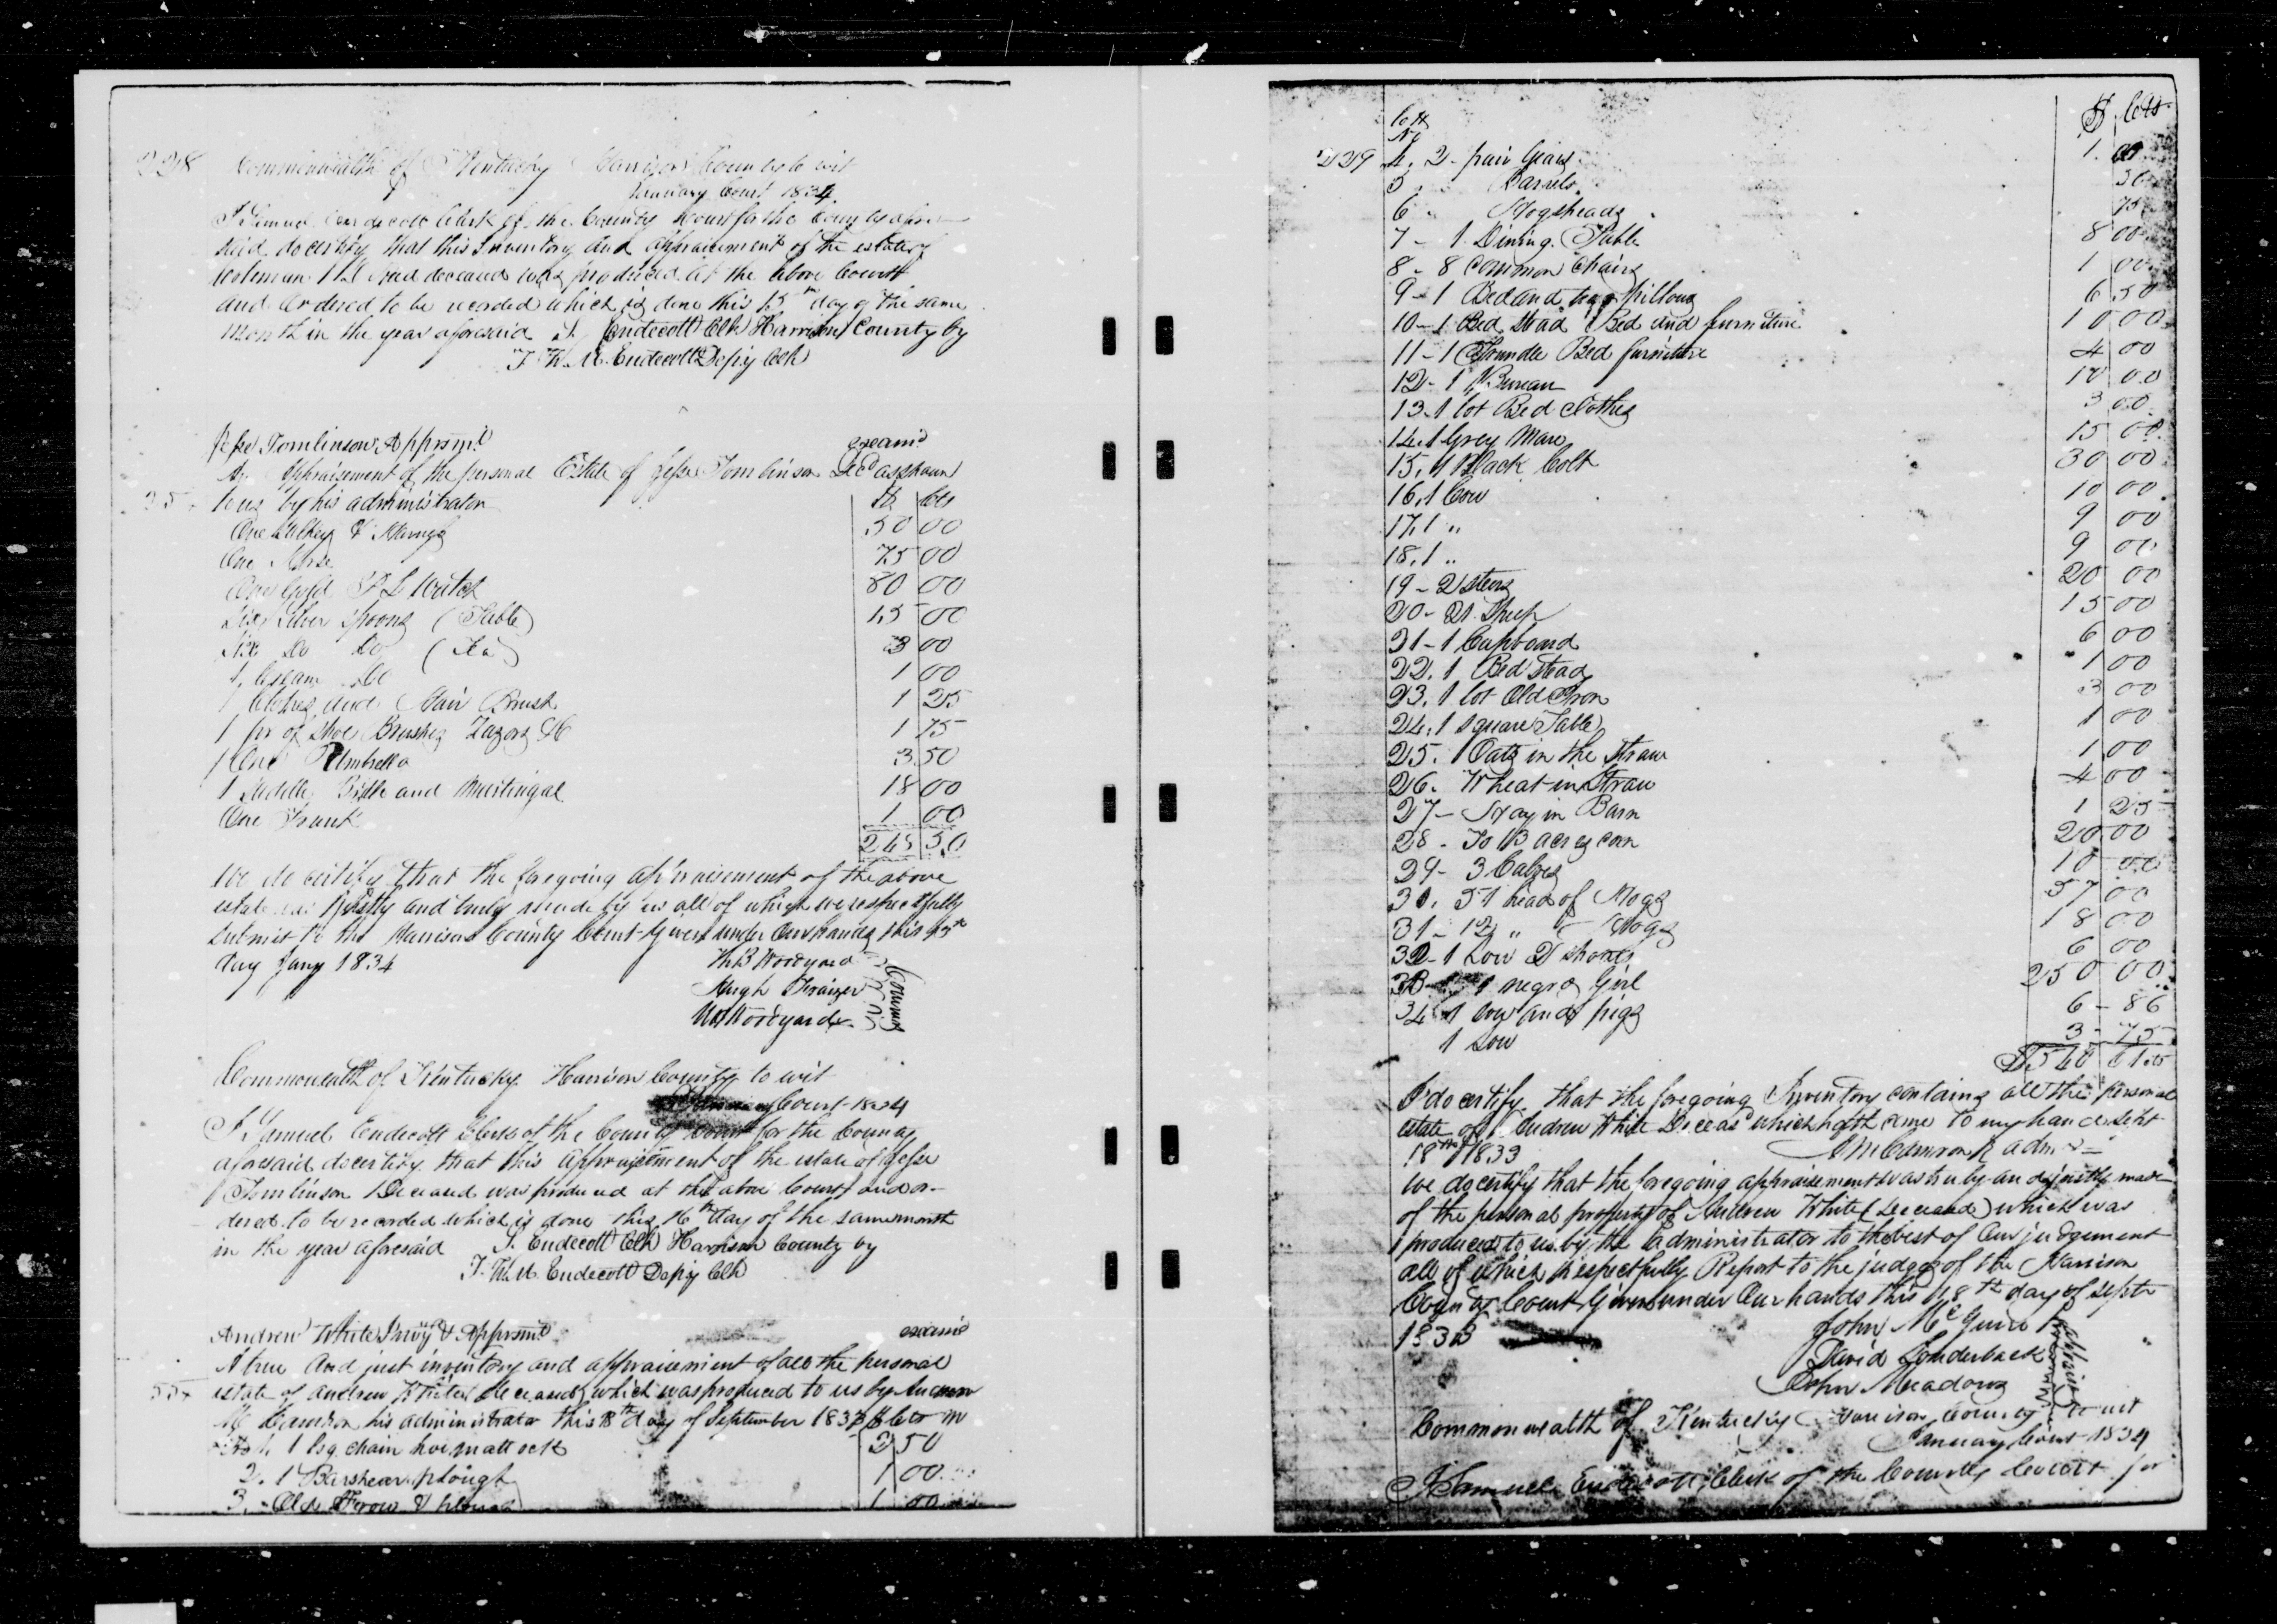 228 Commonwealth of Kentucky Harrison County to wit
January Court 1834
I Samuel Endecott Clerk of the County Court for the County afore
said do certify that this Inventory and appraisement of the estate of
deceased was produced at the above Court
and Ordered to be recorded which is done this 15th day of the same
Month in the year aforesaid S. Endecott Clk Harrison County by
T. W. M. Endecott Depty Clk
Jesse Tomlinson Apprsmt examd
Appraisement of the personal Estate of Jesse Tomlinson Decd as shown
to us by his administrator $ Cts
One Sulkey & Harnys 50 00
One Horse 75 00
One Gold P L Watch 80 00
Six Silver Spoons (Table) 15 00
Six Do Do (Tea) 3 00
1 Cream Do 1 00
1 Clothes and Hair Brush 1 25
1 pr of Shoe Brushes Razors &c 1 75
1 One Umbrella 3.50
1 Saddle Bridle and Martingal 18 00
One Trunk 1 00
249 50
We do certify that the foregoing appraisement of the above
estate was Justly and truly made by us all of which we respectfully
Submit to the Harrison County Court Given under Our hands this 15th
day Jany 1834 Th B Woodyard
Hugh Fraizer
Wm Woodyard
Commrs
Commonwealth of Kentucky Harrison County to wit
January Court 1834
I Samuel Endecott Clerk of the County Court for the County
aforesaid do certify that this Appraisement of the estate of Jesse
Tomlinson Deceased was produced at the above Court and or-
dered to be recorded which is done this 16th day of the same month
in the year aforesaid S. Endecott Clk Harrison County by
T. W. M. Endecott Depty Clk
Andrew White Invy & Apprsmt examd
A true And just inventory and appraisement of all the personal
estate of Andrew White deceased which was produced to us by Andrew
Mc Camron his administrator this 18th day of September 1833 $ Cts
1 Log chain hoe mattock 2 50
2. 1 Barshear plough 1 00
3. Old Plough 1 00
$ Cts
No
229 4. 2 pair Gears 1. 00
5 Barrels 50
6 " Hogsheads 75
7 - 1 Dining Table 8 00
8 - 8 Common Chairs 1 00
9 - 1 Bed and two pillows 6 50
10 - 1 Bed Stead Bed and furniture 10 00
11 - 1 Trundle Bed furniture 4 00
12 - 1 Bureau 10 00
13 - 1 lot Bed Clothes 3 00
14. 1 Grey Mare 15 00
15. 1 Black Colt 30 00
16. 1 Cow 10 00
17. 1 " 9 00
18. 1 " 9 00
19 - 2 Steers 20 00
20 - 21 Sheep 15 00
21 - 1 Cupboard 6 00
22. 1 Bed Stead 1 00
23. 1 lot Old Iron 3 00
24. 1 Square Table 1 00
25. 1 Oats in the Straw 1 00
26. Wheat in Straw 4 00
27 - Hay in Barn 1 25
28 - To 13 acres corn 20 00
29 - 3 Calves 10 00
30. 51 head of Hogs 57 00
31 - 12 " " Hogs 18 00
32 - 1 Sow 2 shoats 6 00
33 - 1 negro Girl 250 00
34 1 Sow and pigs 6 - 86
1 Sow 3 - 75
$540 61
I do certify that the foregoing Inventory contains all the personal
estate of Andrew White Deceasd which hath came to my hands Sept
18th 1833 A McCamron admr
We do certify that the foregoing appraisement was truly and justly made
of the personal property of Andrew White (Deceased) which was
produced to us by the administrator to the best of Our judgement
all of which respectfully Report to the judges of the Harrison
County Court Given under Our hands this 18th day of Septr
1833 John McGuire
David Londerback
John Meadows
Appraisers
Commonwealth of Kentucky Harrison County to wit
January Court 1834
I Samuel Endecott Clerk of the County Court for